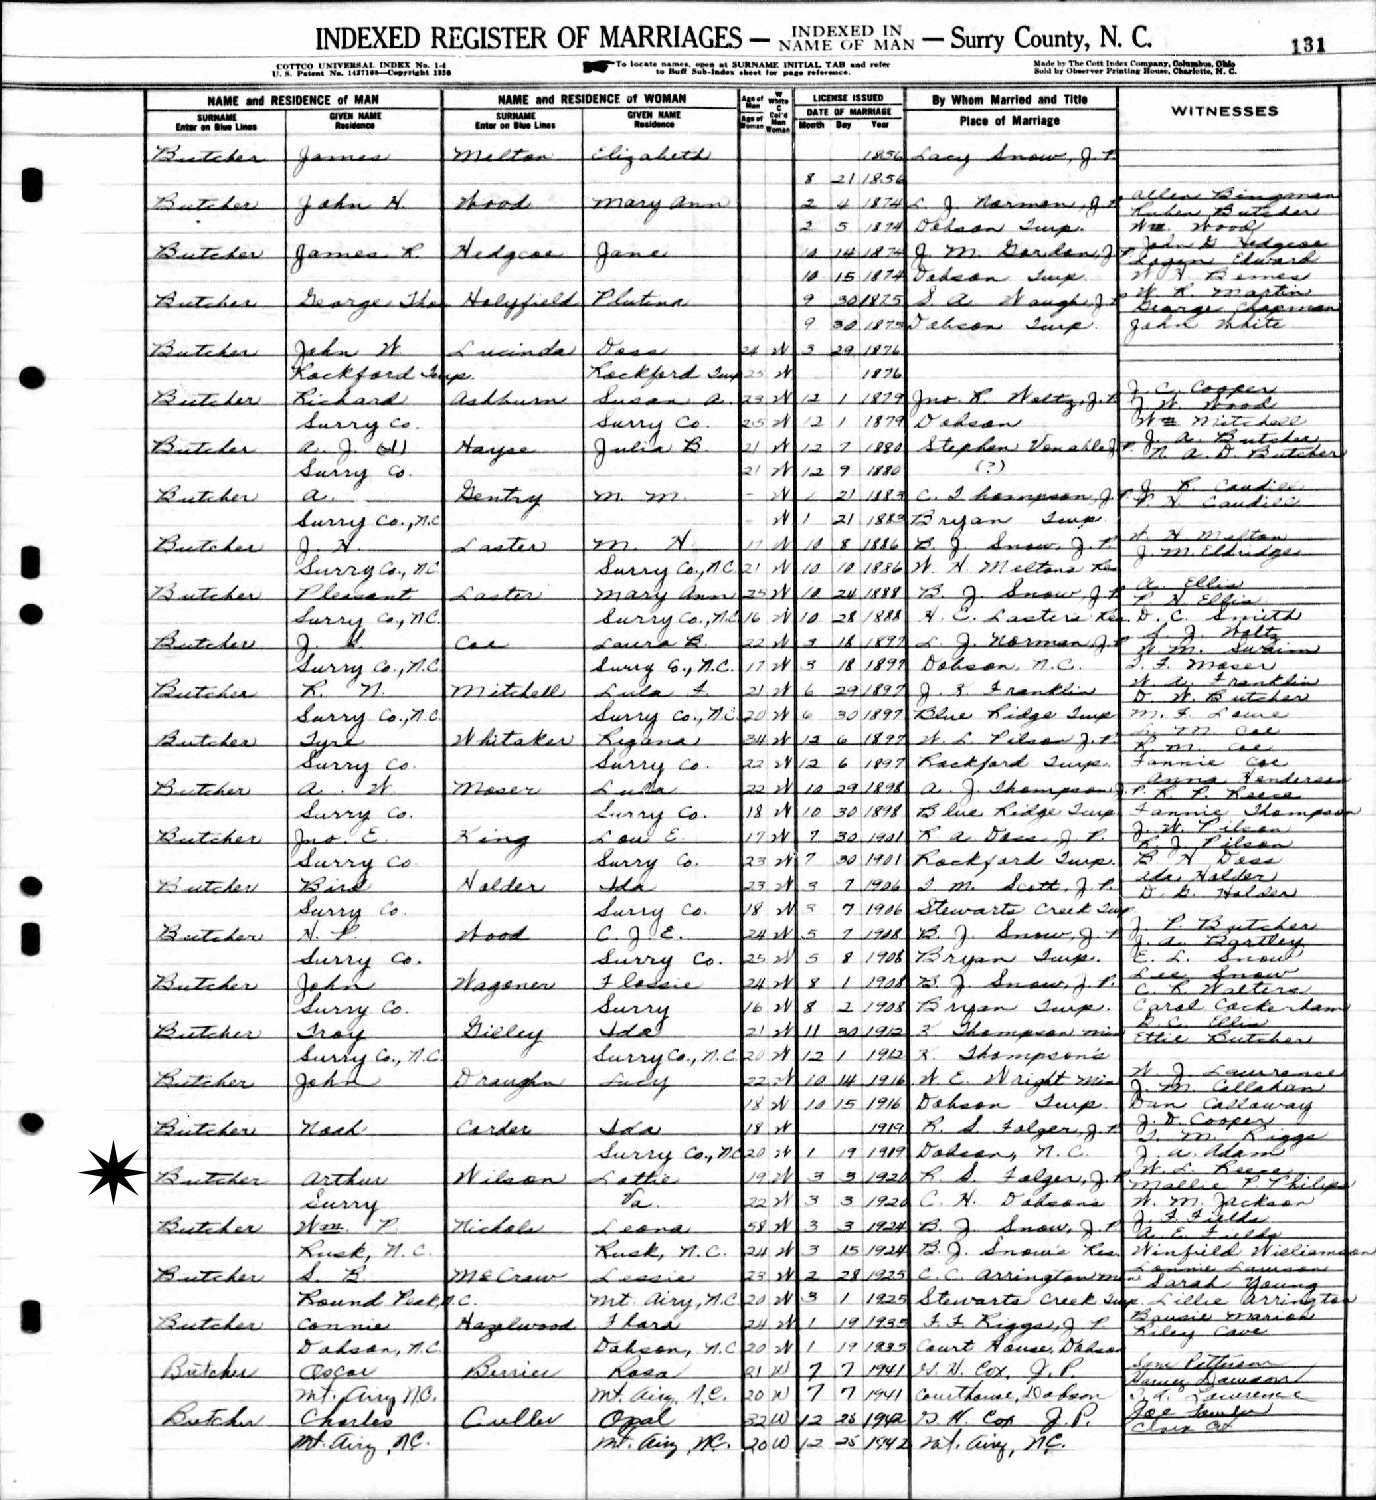 INDEXED REGISTER OF MARRIAGES — INDEXED IN NAME OF MAN — Surry County, N. C.
131
COTTCO UNIVERSAL INDEX No. 1-4
U. S. Patent No. 1437168—Copyright 1930
To locate names, open at SURNAME INITIAL TAB and refer
to Buff Sub-Index sheet for page reference.
Made by The Cott Index Company, Columbus, Ohio
Sold by Observer Printing House, Charlotte, N. C.
NAME and RESIDENCE of MAN NAME and RESIDENCE of WOMAN Age of Man W White LICENSE ISSUED By Whom Married and Title WITNESSES
SURNAME Enter on Blue Lines GIVEN NAME Residence SURNAME Enter on Blue Lines GIVEN NAME Residence Age of Woman C Col'd Man Woman DATE OF MARRIAGE Month Day Year Place of Marriage
Butcher James Melton Elizabeth 1856 Lacy Snow, J.P.
8 21 1856
Butcher John H Wood Mary Ann 2 4 1874 L. J. Norman, J.P. Allen Bingman
Ruben Butcher
2 5 1874 Dobson Twp. Wm Wood
Butcher James R. Hedgcoe Jane 10 14 1874 J. M. Gordon, J.P. John G Hedgcoe
Logan Edward
10 15 1874 Dobson Twp.
Butcher George Tho Holyfield Plutina 9 30 1875 S. A. Waugh J.P. W. R. Martin
George Chapman
9 30 1875 Dobson Twp. John White
Butcher John W Lucinda Doss 24 W 3 29 1876
Rockford Twp. Rockford Twp 25 W 1876
Butcher Richard Ashburn Susan A. 23 W 12 1 1879 Jno. R. Waltz, J.P. J. C. Cooper
J. W. Wood
Surry Co. Surry Co. 25 W 12 1 1879 Dobson Wm Mitchell
Butcher A. J. Hayse Julia B. 21 W 12 7 1880 Stephen Venable J.P. J. A. Butcher
N. A. D. Butcher
Surry Co. 21 W 12 9 1880 (?)
Butcher A. Gentry M. M. - W 1 21 1883 C. Thompson, J.P. J. R. Caudill
P. H. Caudill
Surry Co., N.C. - W 1 21 1883 Bryan Twp.
Butcher J. H. Laster M. H. 17 W 10 8 1886 B. J. Snow, J.P. W. H Melton
J. M. Eldridge
Surry Co., N.C. Surry Co., N.C. 21 W 10 10 1886 W. H. Meltons Res
Butcher Pleasant Laster Mary Ann 25 W 10 24 1888 B. J. Snow, J.P. A. Ellis
P. H Ellis
Surry Co., N.C. Surry Co., N.C. 16 W 10 28 1888 H. C. Laster's Res. D. C. Smith
Butcher J. Coe Laura B. 22 W 3 18 1897 L. J. Norman, J.P. L. J. Waltz
W. M. Swaim
Surry Co., N.C. Surry Co., N.C. 17 W 3 18 1897 Dobson, N.C. T. F. Moser
Butcher R. N. Mitchell Lula F. 21 W 6 29 1897 J. F. Franklin W. A. Franklin
D. W. Butcher
Surry Co., N.C. Surry Co., N.C. 20 W 6 30 1897 Blue Ridge Twp M. F. Lowe
Butcher Tyre Whitaker Rigana 34 W 12 6 1897 W. L. Pilson J.P. M Coe
R. M. Coe
Surry Co. Surry Co. 22 W 12 6 1897 Rockford Twp. Fannie Coe
Butcher A. W. Moser Lula 22 W 10 29 1898 A. J. Thompson J.P. Anna Henderson
R. P. Reece
Surry Co. Surry Co. 18 W 10 30 1898 Blue Ridge Twp Fannie Thompson
Butcher Jno. E. King Lou E. 17 W 7 30 1901 R A Doss J. P. J. W. Pilson
R. J. Pilson
Surry Co. Surry Co. 23 W 7 30 1901 Rockford Twp. B H Doss
Butcher Bird Holder Ida 23 W 3 7 1906 T. M. Scott, J.P. Ida Holder
D. G. Holder
Surry Co. Surry Co. 18 W 3 7 1906 Stewarts Creek Twp.
Butcher H. P Wood C. J. E. 24 W 5 7 1908 B. J. Snow, J.P. J. P. Butcher
J. A. Bartley
Surry Co. Surry Co. 25 W 5 8 1908 Bryan Twp. E. L. Snow
Butcher John Wagoner Flossie 24 W 8 1 1908 B. J. Snow, J.P. Lee Snow
C. R Walters
Surry Co. Surry 16 W 8 2 1908 Bryan Twp. Carol Cockerham
Butcher Troy Gilley Ida 21 W 11 30 1912 K. Thompson Min D. C. Ellis
Ettie Butcher
Surry Co., N.C. Surry Co., N.C. 20 W 12 1 1912 K. Thompson's
Butcher John Draughn Lucy 22 W 10 14 1916 W. E. Wright Min W. J. Lawrence
J. M. Callahan
18 W 10 15 1916 Dobson Twp. Dan Calloway
Butcher Noah Carder Ida 18 W 1919 R. S. Folger, J.P. J. D. Cooper
T. M. Riggs
Surry Co., N.C. 20 W 1 19 1919 Dobson, N.C. J. A. Adam
Butcher Arthur Wilson Lottie 19 W 3 3 1920 R. S. Folger, J.P. W. L. Reece
Mallie P. Philips
Surry Va. 22 W 3 3 1920 C. H. Dobson's W. M. Jackson
Butcher Wm. P. Nichols Leona 58 W 3 3 1924 B. J. Snow, J.P. J. F. Fields
A. E. Fields
Rusk, N.C. Rusk, N.C. 24 W 3 15 1924 B. J. Snow's Res. Winfield Williamson
Butcher S. B. McCraw Lessie 23 W 2 28 1925 C. C. Arrington Min Lonnie Lawson
Sarah Young
Round Peak, N.C. Mt. Airy, N.C. 20 W 3 1 1925 Stewarts Creek Twp. Lillie Arrington
Butcher Connie Hazelwood Flora 24 W 1 19 1935 F. F. Riggs, J. P. Bausie Marion
Riley Cave
Dobson, N.C. Dobson, N.C. 20 W 1 19 1935 Court House, Dobson
Butcher Oscar Berrier Rosa 21 W 7 7 1941 W. H. Cox, J.P.
Mt. Airy, N.C. Mt. Airy, N.C. 20 W 7 7 1941 Courthouse, Dobson T. A. Lawrence
Butcher Charles Culler Opal 32 W 12 25 1942 W. H. Cox J.P.
Mt. Airy, N.C. Mt. Airy, N.C. 20 W 12 25 1942 Mt. Airy, N.C.